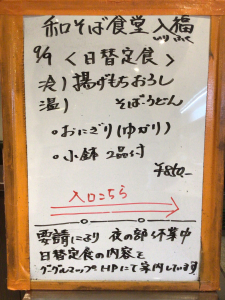 和そば食堂 入福
いり ふく
9/9 〈日替定食〉
冷) 揚げもちおろし
温) そばうどん
・おにぎり(ゆかり)
・小鉢 2品付
¥860-
入口こちら
要請により 夜の部休業中
日替定食の内容を
グーグルマップHPにて案内しています